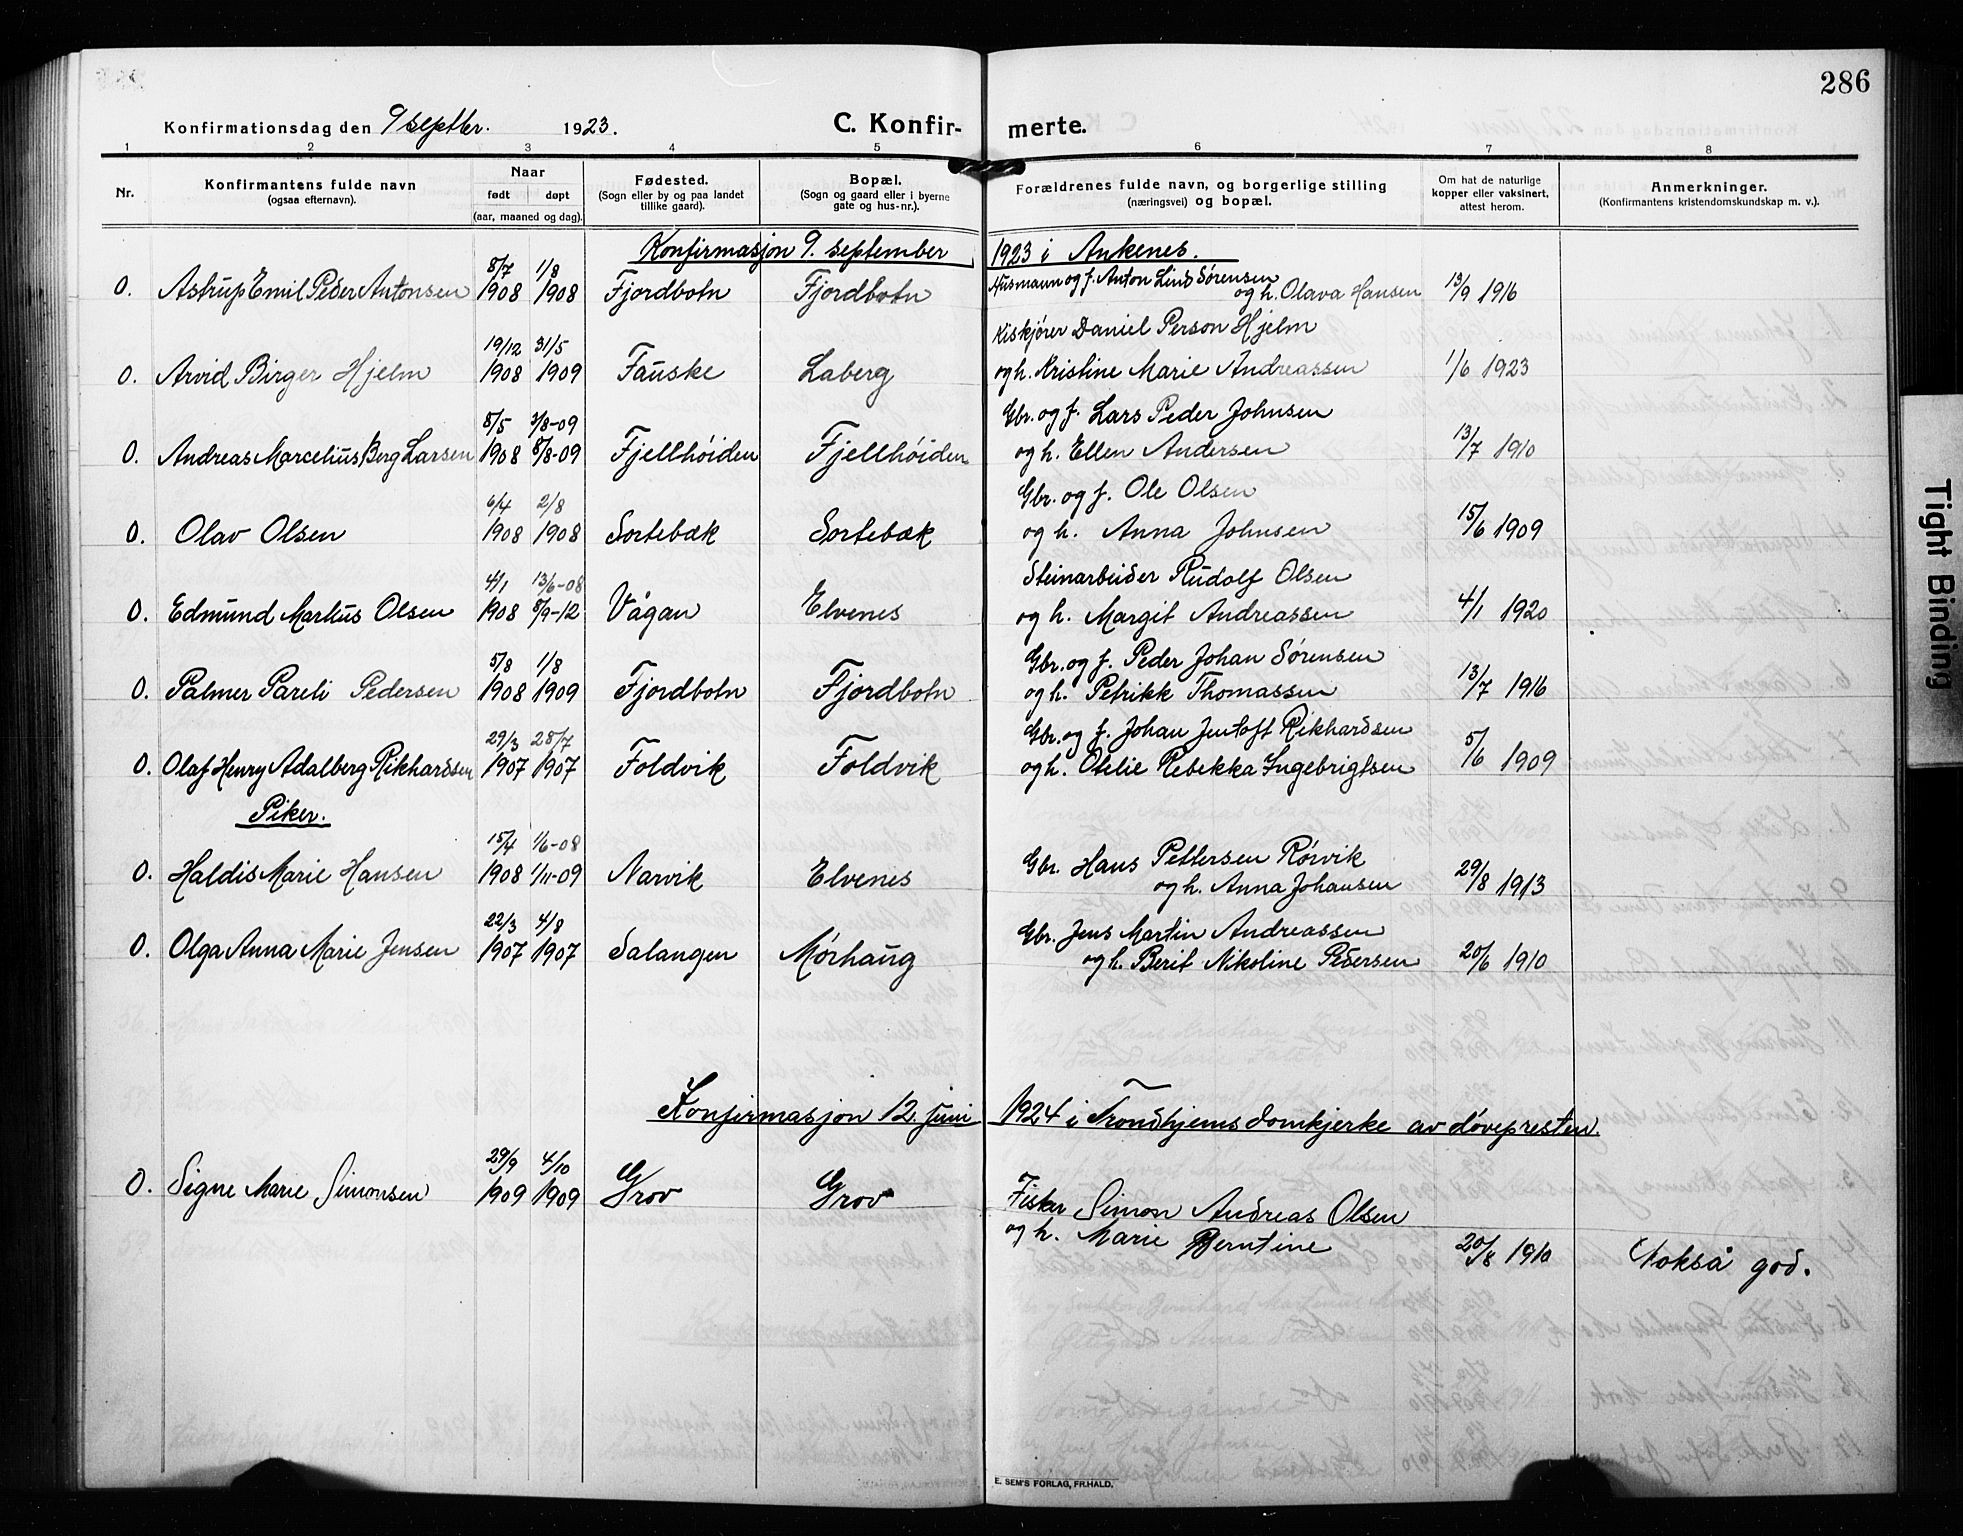 286
Konfirmationsdag den 9 septbr. 1923. C. Konfir- merte.
1 2 3 4 5 6 7 8
Nr.
Konfirmantens fulde navn
(ogsaa efternavn).
Naar
født døpt
(aar, maaned og dag).
Fødested.
(Sogn eller by og paa landet
tillike gaard).
Bopæl.
(Sogn og gaard eller i byerne
gate og hus-nr.).
Forældrenes fulde navn, og borgerlige stilling
(næringsvei) og bopæl.
Om hat de naturlige
kopper eller vaksinert,
attest herom.
Anmerkninger.
(Konfirmantens kristendomskundskap m. v.).
Konfirmasjon 9. september 1923 i Ankenes.
8/7 1/8 Husmann og f. Anton Lind Sørensen
0. Astrup Emil Peder Antonsen 1908 1908 Fjordbotn Fjordbotn og h. Olava Hansen 13/9 1916
19/12 31/5 Kiskjører Daniel Person Hjelm
0. Arvid Birger Hjelm 1908 1909 Fauske Laberg og h. Kristine Marie Andreassen 1/6 1923
8/5 3/8-09 Gbr. og f. Lars Peder Johnsen
0. Andreas Marcelius Berg Larsen 1908 8/8-09 Fjellhøiden Fjellhøiden og h. Ellen Andersen 13/7 1910
6/4 2/8 Gbr. og f. Ole Olsen
0. Olav Olsen 1908 1908 Sortebæk Sortebæk og h. Anna Johnsen 15/6 1909
4/1 13/6-08 Steinarbeider Rudolf Olsen
0. Edmund Markus Olsen 1908 8/9-12 Vågan Elvenes og h. Margit Andreassen 4/1 1920
5/8 1/8 Gbr. og f. Peder Johan Sørensen
0. Palmer Pareli Pedersen 1908 1909 Fjordbotn Fjordbotn og h. Petrikk Thomassen 13/7 1916
29/3 28/7 Gbr. og f. Johan Jentoft Rikhardsen
0. Olaf Henry Adalberg Rikhardsen 1907 1907 Foldvik Foldvik og h. Otelie Rebekka Ingebrigtsen 5/6 1909
Piker.
15/4 1/6-08 Gbr. Hans Pettersen Rørvik
0. Haldis Marie Hansen 1908 1/11-09 Narvik Elvenes og h. Anna Johansen 29/8 1913
22/3 4/8 Gbr. Jens Martin Andreassen
0. Olga Anna Marie Jensen 1907 1907 Salangen Mørhaug og h. Berit Nikoline Pedersen 20/6 1910
Konfirmasjon 12. juni 1924 i Trondhjems domkjerke av døvepresten.
29/9 4/10
0. Signe Marie Simonsen 1909 1909 Grov Grov Fisker Simon Andreas Olsen
og h. Marie Berntine 20/8 1910 Nokså god.
E. SEM'S FORLAG, FR.HALD.
Tight Binding